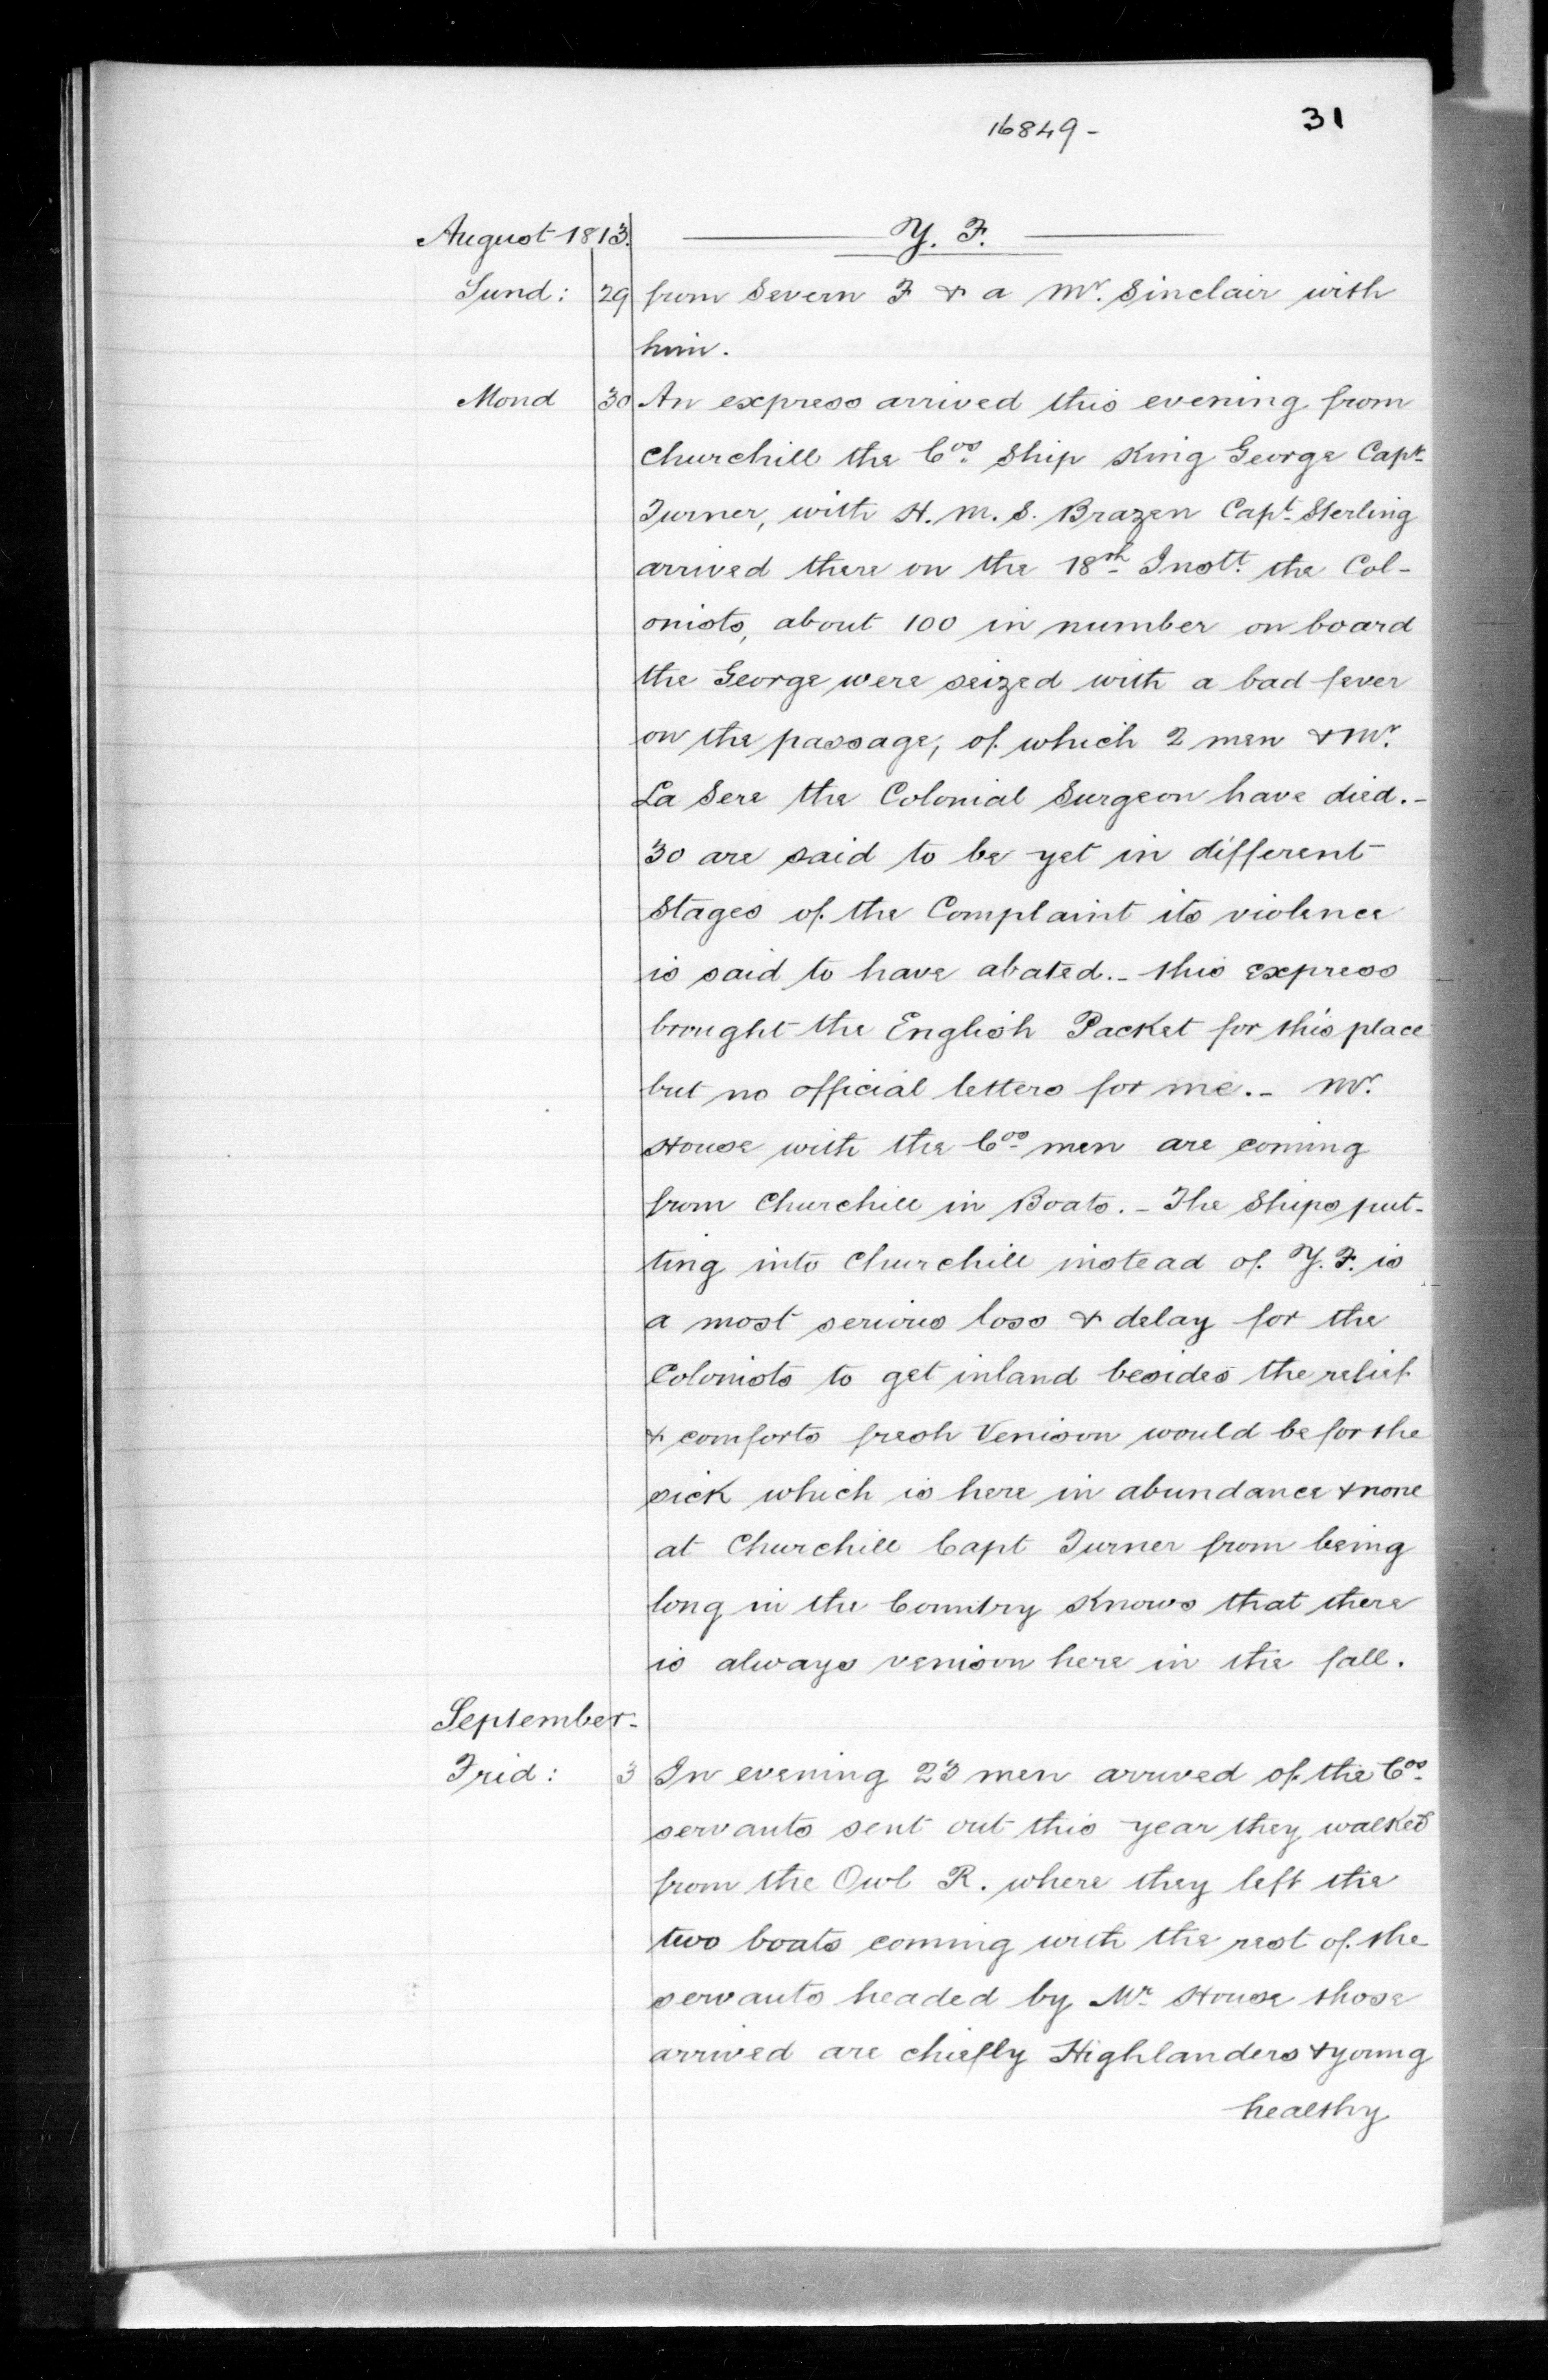 16849-
31
August 1813. Y. F.
Sund: 29 from Severn F & a Mr. Sinclair with
him.
Mond 30 An express arrived this evening from
Churchill the Cos. Ship King George Capt.
Turner, with H. M. S. Brazen Capt. Sterling
arrived there on the 18th Instt. the Col-
onists, about 100 in number on board
the George were seized with a bad fever
on the passage, of which 2 men & Mr.
La Sere the Colonial Surgeon have died.-
30 are said to be yet in different
Stages of the Complaint its violence
is said to have abated.- this express
brought the English Packet for this place
but no official letters for me.- Mr.
House with the Cos. men are coming
from Churchill in Boats.- The Ships put-
ting into Churchill instead of Y. F. is
a most serious loss & delay for the
Colonists to get inland besides the relief
& comforts fresh Venison would be for the
sick which is here in abundance & none
at Churchill Capt Turner from being
long in the Country knows that there
is always venison here in the fall.
September-
Frid: 3 In evening 23 men arrived of the Cos.
servants sent out this year they walked
from the Owl R. where they left the
two boats coming with the rest of the
servants headed by Mr. House those
arrived are chiefly Highlanders & young
healthy